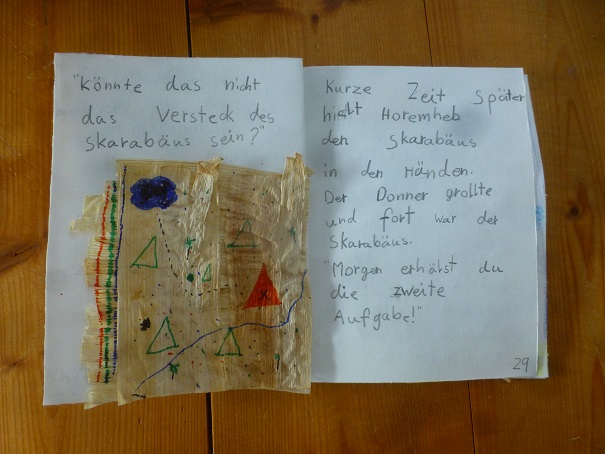 "Könnte das nicht
das Versteck des
Skarabäus sein?"
Kurze Zeit später
hielt Horemheb
den Skarabäus
in den Händen.
Der Donner grollte
und fort war der
Skarabäus.
"Morgen erhälst du
die zweite
Aufgabe!"
29